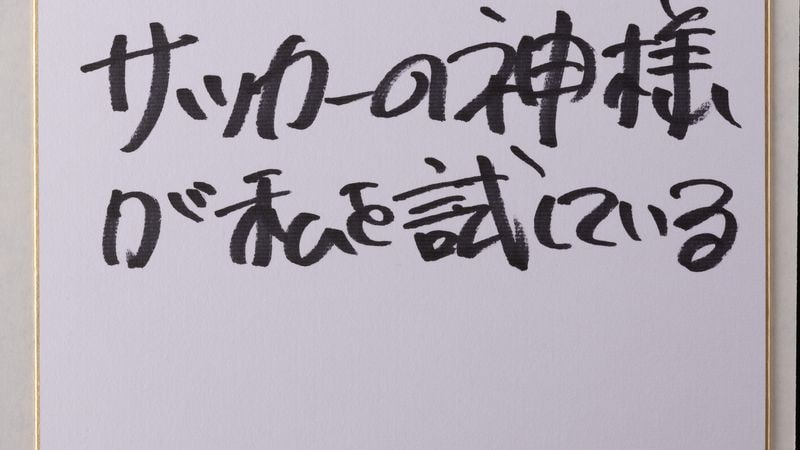 サッカーの神様
が私を試している